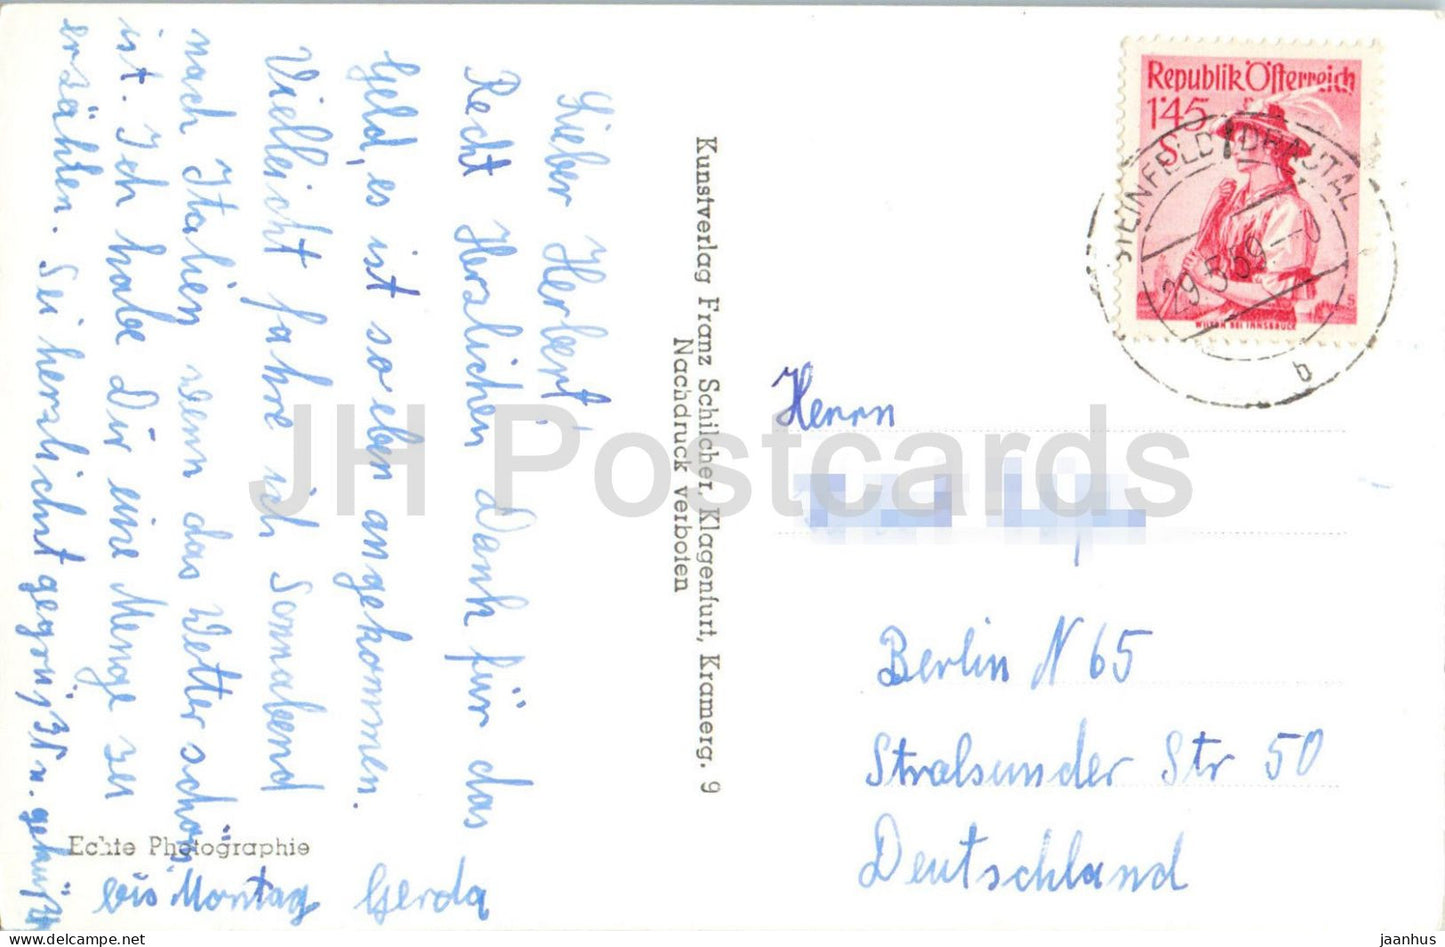 Lieber Herbert!
Recht Herzlichen Dank für das
Geld, es ist soeben angekommen.
Vielleicht fahre ich Sonnabend
nach Italien wenn das Wetter schön
ist. Ich habe Dir eine Menge zu
erzählen. Sei herzlichst gegrüßt u. geküßt
bis Montag Gerda
Echte Photographie
Kunstverlag Franz Schilcher, Klagenfurt, Kramerg. 9
Nachdruck verboten
Republik Österreich
1'45
S
WILTEN BEI INNSBRUCK
STEINFELD DRAUTAL
29.5.59
b
Herrn
Berlin N 65
Stralsunder Str 50
Deutschland
JH Postcards
jaanhus — https://www.delcampe.net